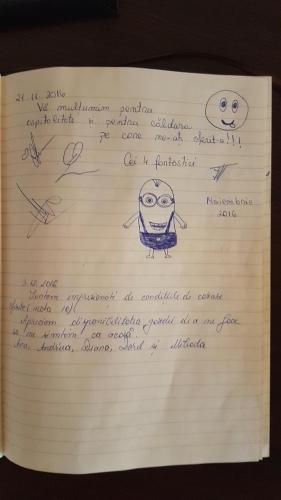 21.11.2016
Vă mulțumim pentru
ospitalitate și pentru căldura
pe care ne-ați oferit-o!!!
Cei 4 fantastici
Noiembrie
2016
3.12.2016
Suntem impresionați de condițiile de cazare
(nota 10)!
Apreciem disponibilitatea gazdei de a ne face
să ne simțim ca acasă.
Ana, Andreea, Diana, și